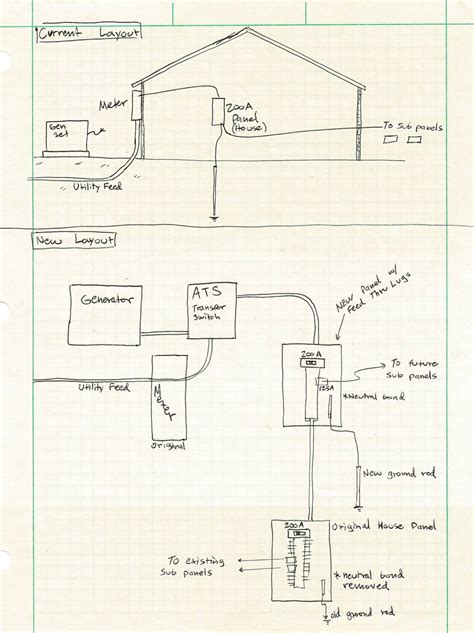 Current Layout
Meter
200A
Panel
(House)
Gen
Set
To Sub panels
Utility Feed
New Layout
Generator
ATS
Transfer
Switch
NEW Panel w/
Feed Thru Lugs
200A
To future
Sub panels
125A
*Neutral bond
Utility Feed
Original
New ground rod
200A
Original House Panel
To existing
Sub panels
*neutral bond
removed
old ground rod